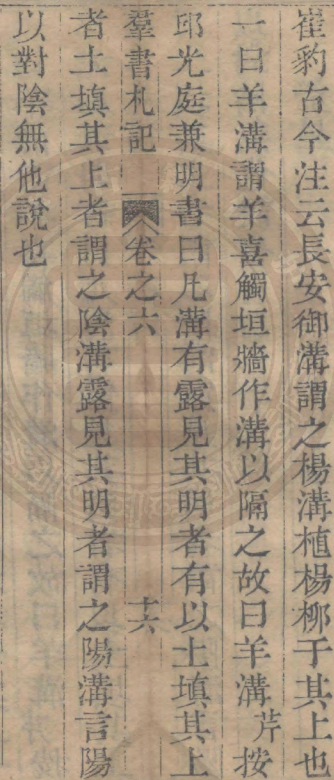 崔豹古今注云長安御溝謂之楊溝植楊柳于其上也
一曰羊溝謂羊喜觸垣牆作溝以隔之故曰羊溝芹按
邱光庭兼明書曰凡溝有露見其明者有以土填其上
羣書札記 卷之六 十六
者土填其上者謂之陰溝露見其明者謂之陽溝言陽
以對陰無他說也